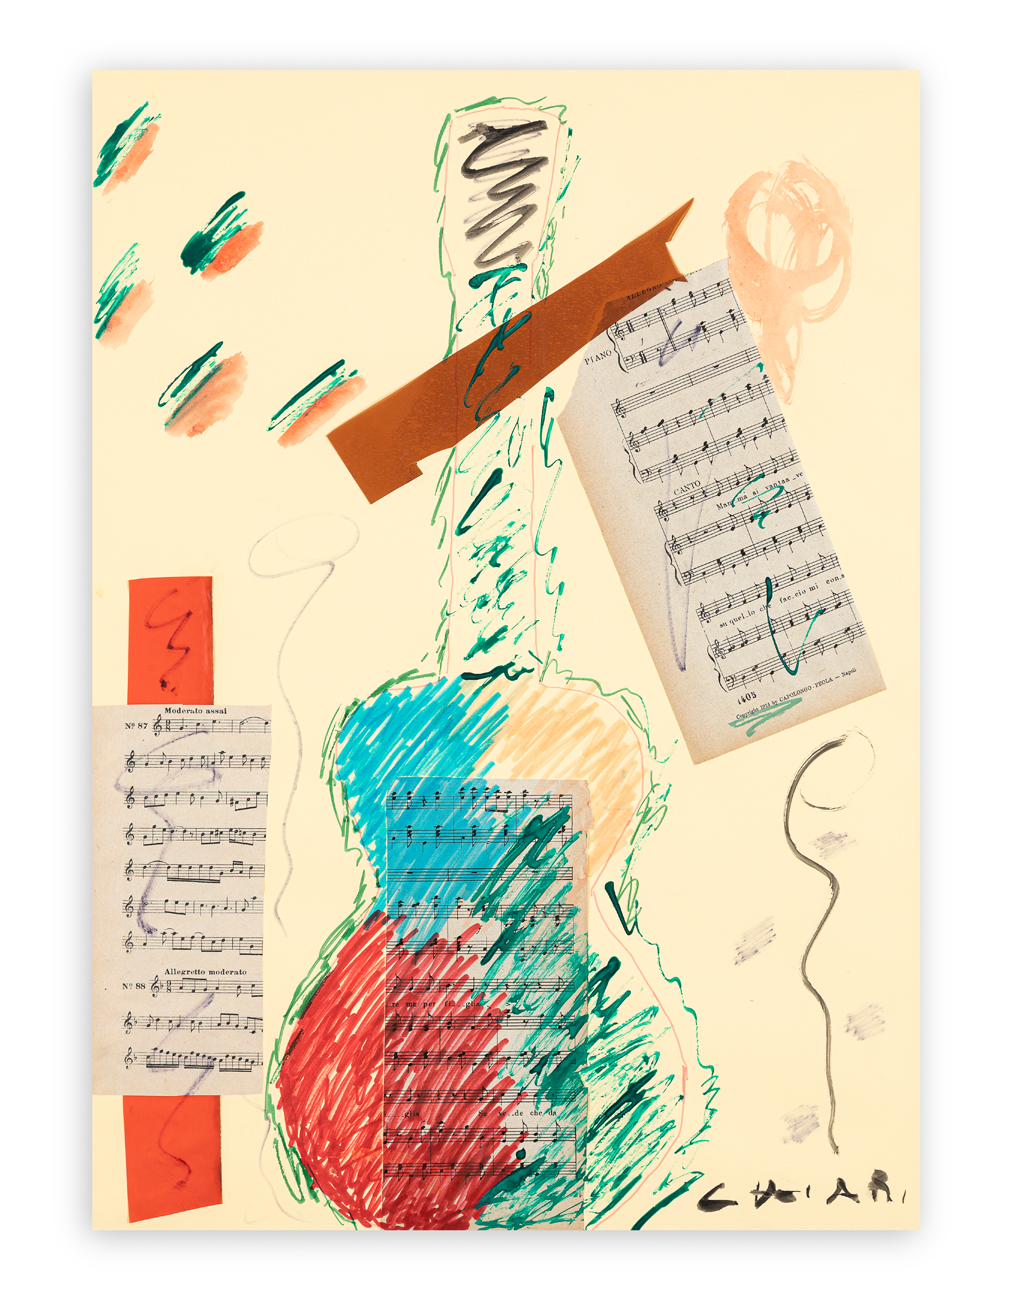 ALLEGRO
PIANO
CANTO
Mam ma ai vantaa_ve
su quel_lo che fac_cio mi con_s
1405
Copyright 1913 by CAPOLONGO-FEOLA — Napoli
Moderato assai
Nº 87
Allegretto moderato
Nº 88
re ma per
glia Se ve..de che da
CHIARI